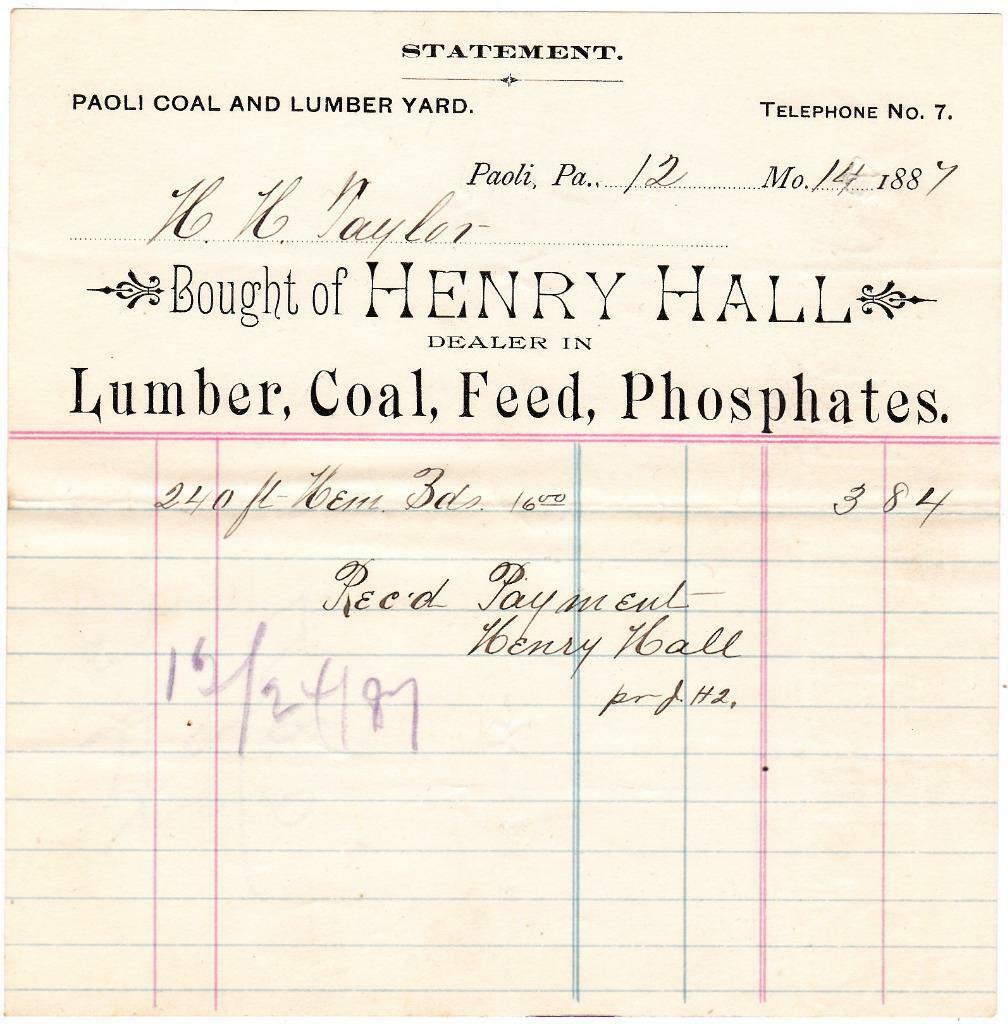 STATEMENT.
PAOLI COAL AND LUMBER YARD.
TELEPHONE No. 7.
Paoli, Pa., 12 Mo. 14 1887
H. H. Taylor
Bought of HENRY HALL
DEALER IN
Lumber, Coal, Feed, Phosphates.
240 ft Hem. Bds. 1600 3 84
Rec'd Payment
Henry Hall
pr J.
12/24/87